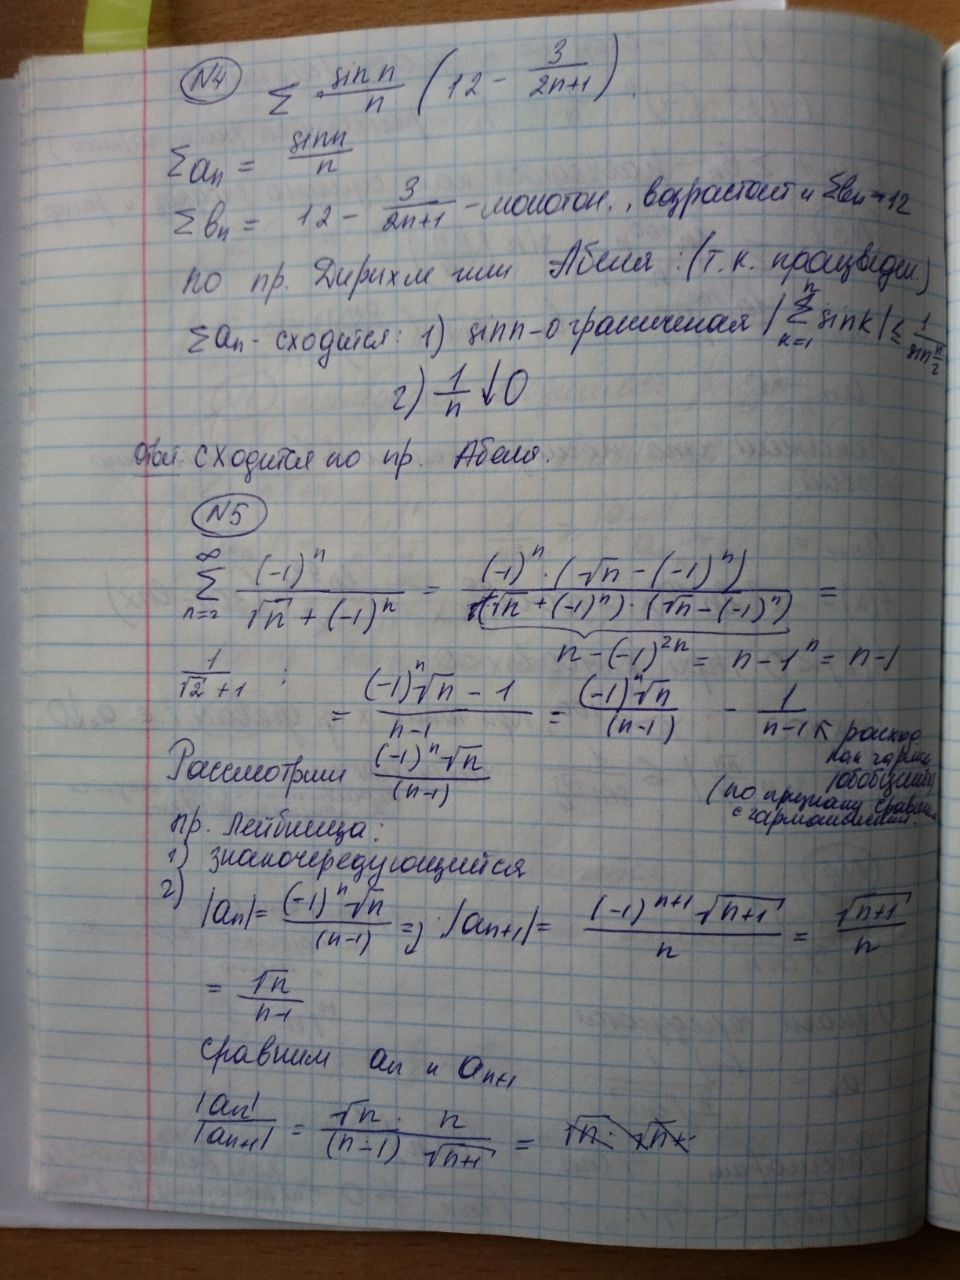 N4 Σ sin n / n (12 - 3/(2n+1))
Σaₙ = sinn/n
Σbₙ = 12 - 3/(2n+1) - монотон., возрастает и Σbₙ→12
по пр. Дирихле или Абеля: (т.к. произведен.)
Σaₙ - сходится: 1) sinn - ограниченная |Σⁿₖ₌₁ sink| ≤ 1/sin n/2
2) 1/n ↓ 0
Ответ: сходится по пр. Абеля.
N5
∞Σn=2 (-1)ⁿ/(√n + (-1)ⁿ) = (-1)ⁿ·(√n - (-1)ⁿ)/((√n + (-1)ⁿ)·(√n - (-1)ⁿ)) =
n - (-1)²ⁿ = n - 1ⁿ = n-1
1/(√2 + 1) ; = ((-1)ⁿ√n - 1)/(n-1) = (-1)ⁿ√n/(n-1) - 1/(n-1) ← расход
как гармон.
(обобщенный)
Рассмотрим (-1)ⁿ√n/(n-1)
(по признаку сравнен.
с гармоническим.
пр. Лейбница:
1) знакочередующийся
2) |aₙ| = (-1)ⁿ√n/(n-1) =; |aₙ₊₁| = (-1)ⁿ⁺¹√(n+1)/n = √(n+1)/n
= √n/(n-1)
сравним aₙ и aₙ₊₁
|aₙ|/|aₙ₊₁| = √n · n/((n-1) √(n+1)) =